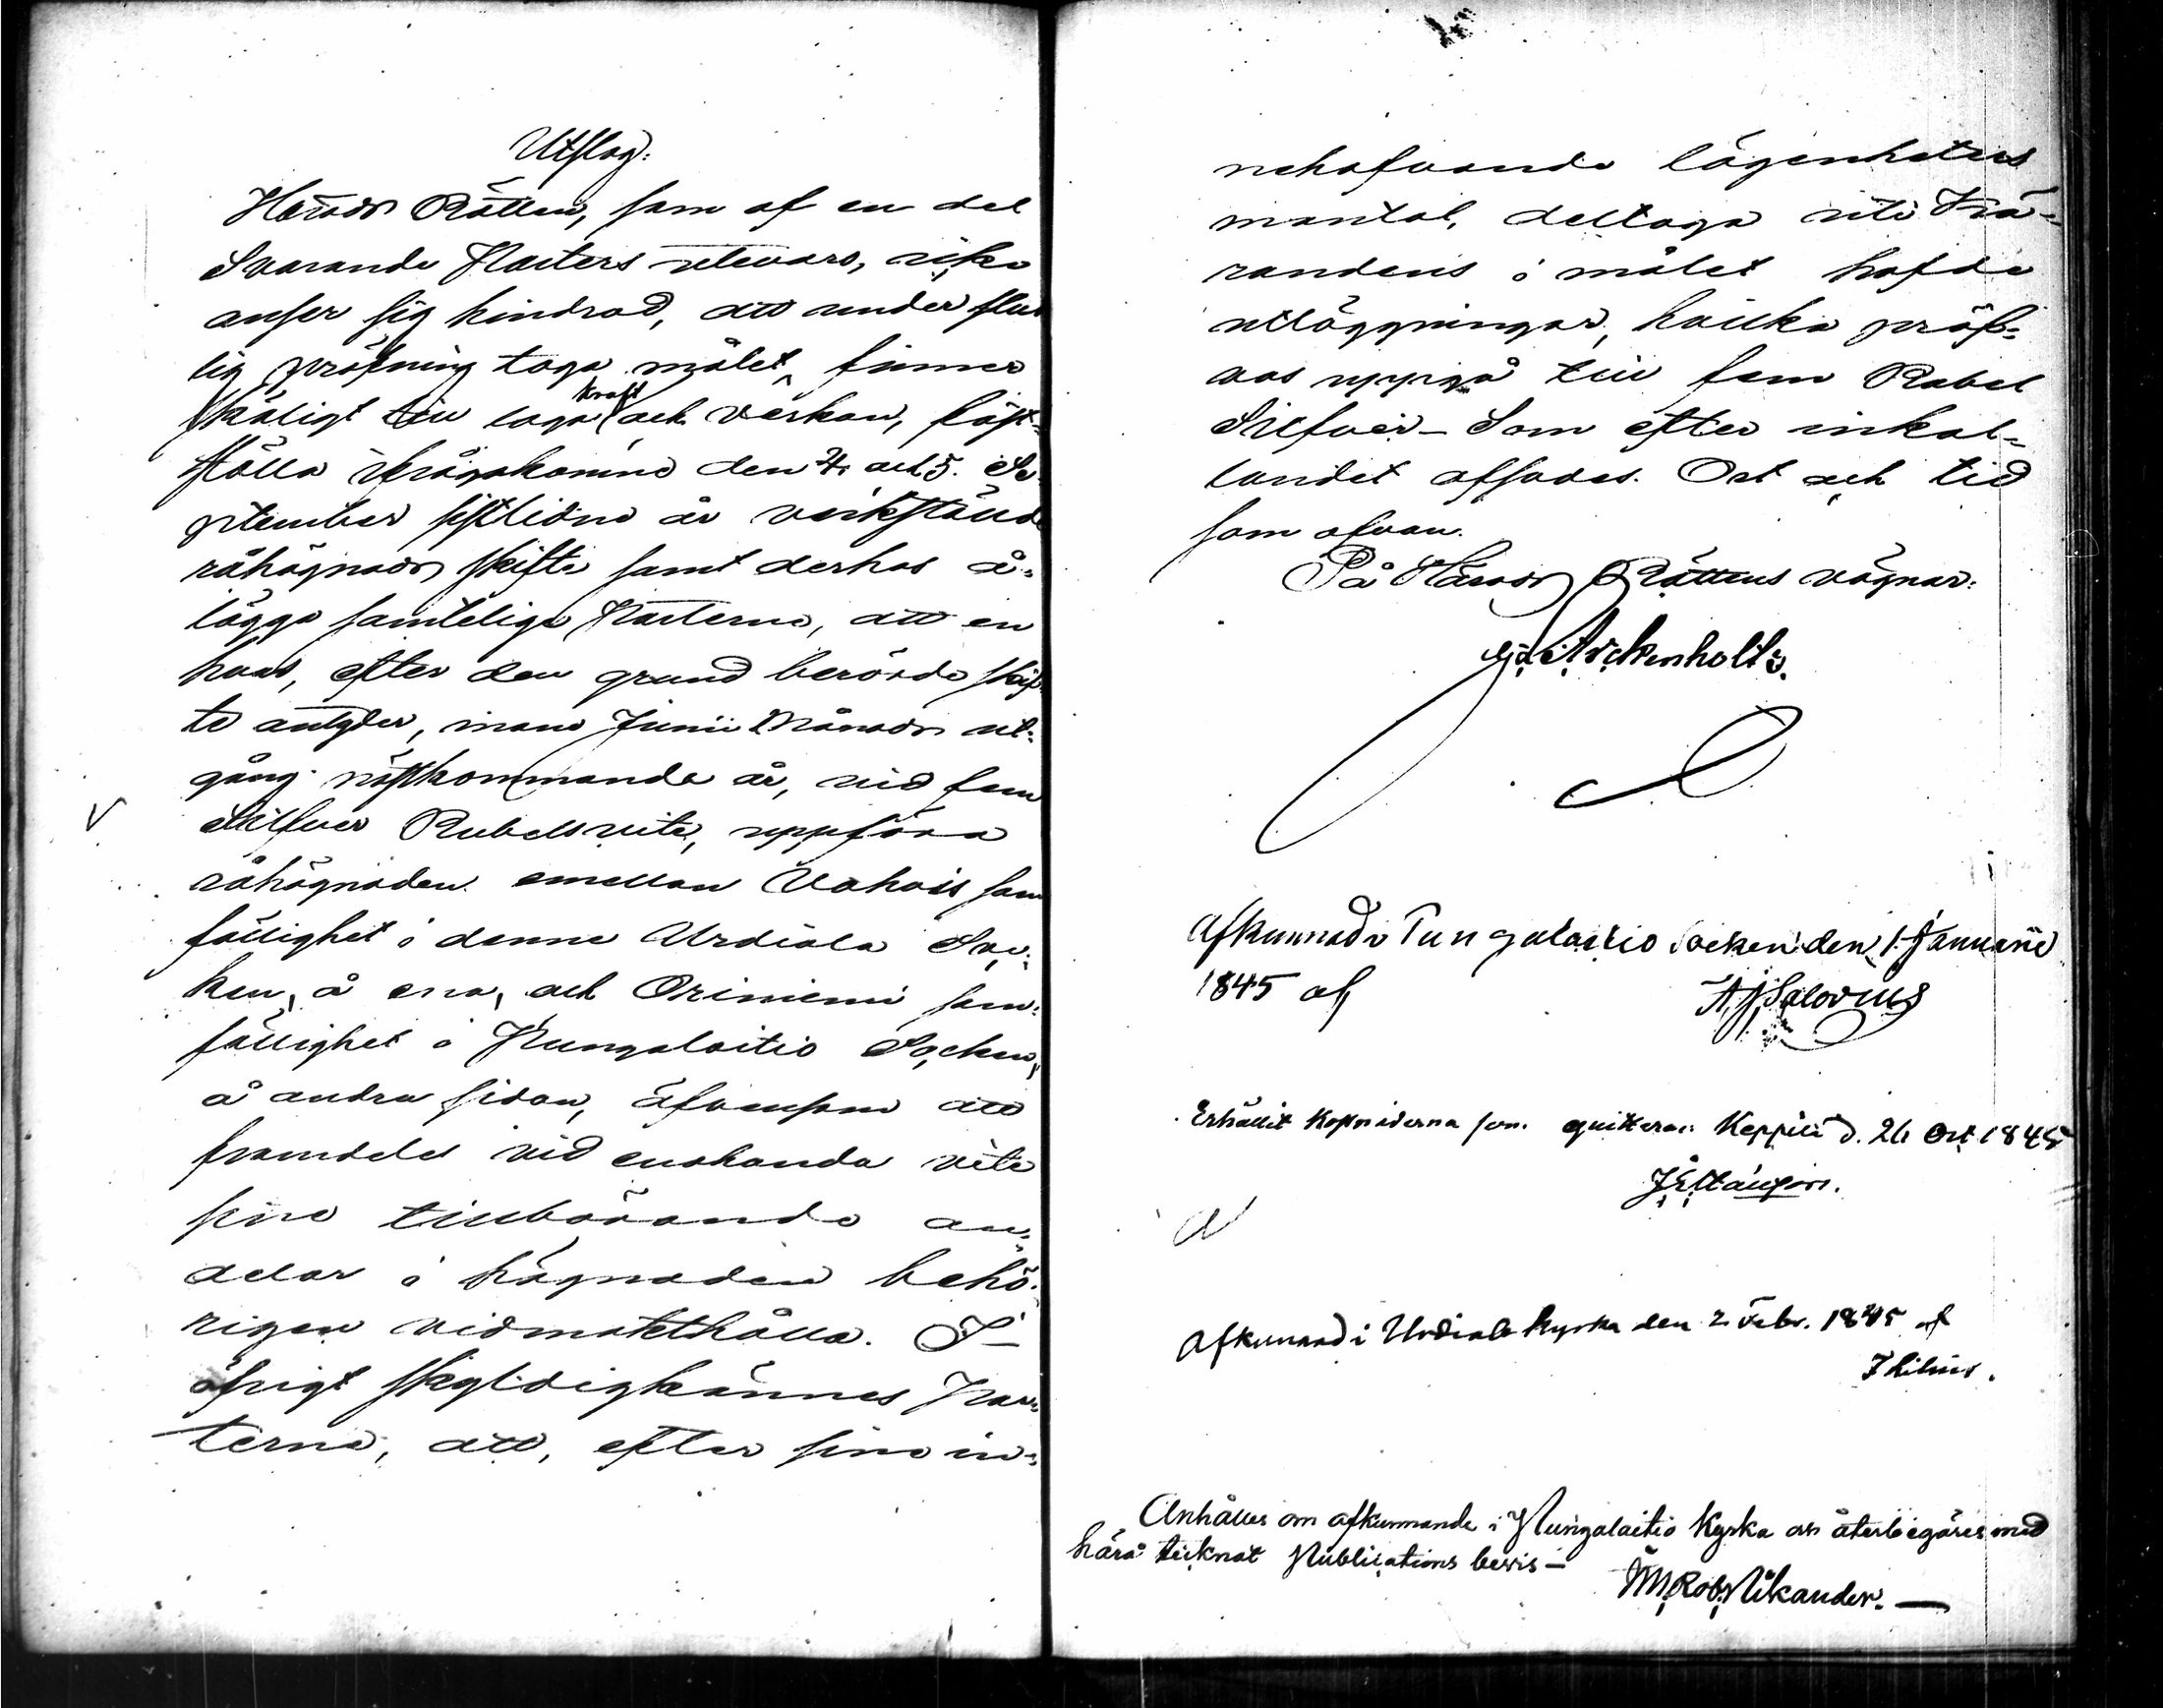 Utslag:
Härads Rätten, som af en del
Svarande Parters utevaro, icke
anser sig hindrad, att under slut
lig pröfning taga målet, finner
skäligt till laga kraft och verkan, fast-
ställa ifrågakomne den 4. och 5. Se
ptember sistlidne år verkställde
råhägnads skifte samt derhos å-
lägga samtelige Parterne, att en
hvar, efter den grund berörde skif
te antyder, innan Junii Månads ut-
gång nästkommande år, vid fem
Silfver Rubels vite, uppföra
råhägnaden emellan Vahois sam
fällighet i denne Urdiala Soc-
ken, å ena, och Oriniemi sam-
fällighet i Pungalaitio Socken,
å andra sidan, äfvensom att
framdeles vid enahanda vite
sine tillhörande an-
delar i hägnaden behö-
rigen vidmakthålla. I
öfrigt skyldigkännes Par-
terne, att, efter sine in-
nehafvande lägenheters
mantal, deltaga uti Kä-
randens i målet hafde
utläggningar, hvilka pröf-
vas uppgå till fem Rubel
Silfver - Som efter inkal-
landet afsades. Ort och tid
som ofvan.
På Härads Rättens vägnar:
Arckenholtz.
Afkunnad i Pungalaitio Socken den 1 Januarii
1845 af
A J Salovius
Erhållit Kostnaderna som quitteras Keppilä d. 26 Oct 1845
Afkunnad i Urdiala kyrka den 2 Febr. 1845 af
Anhålles om afkunnande i Pungalaitio Kyrka och återbegäres med
härå tecknat Publications bevis -
Rob. Vikander. -